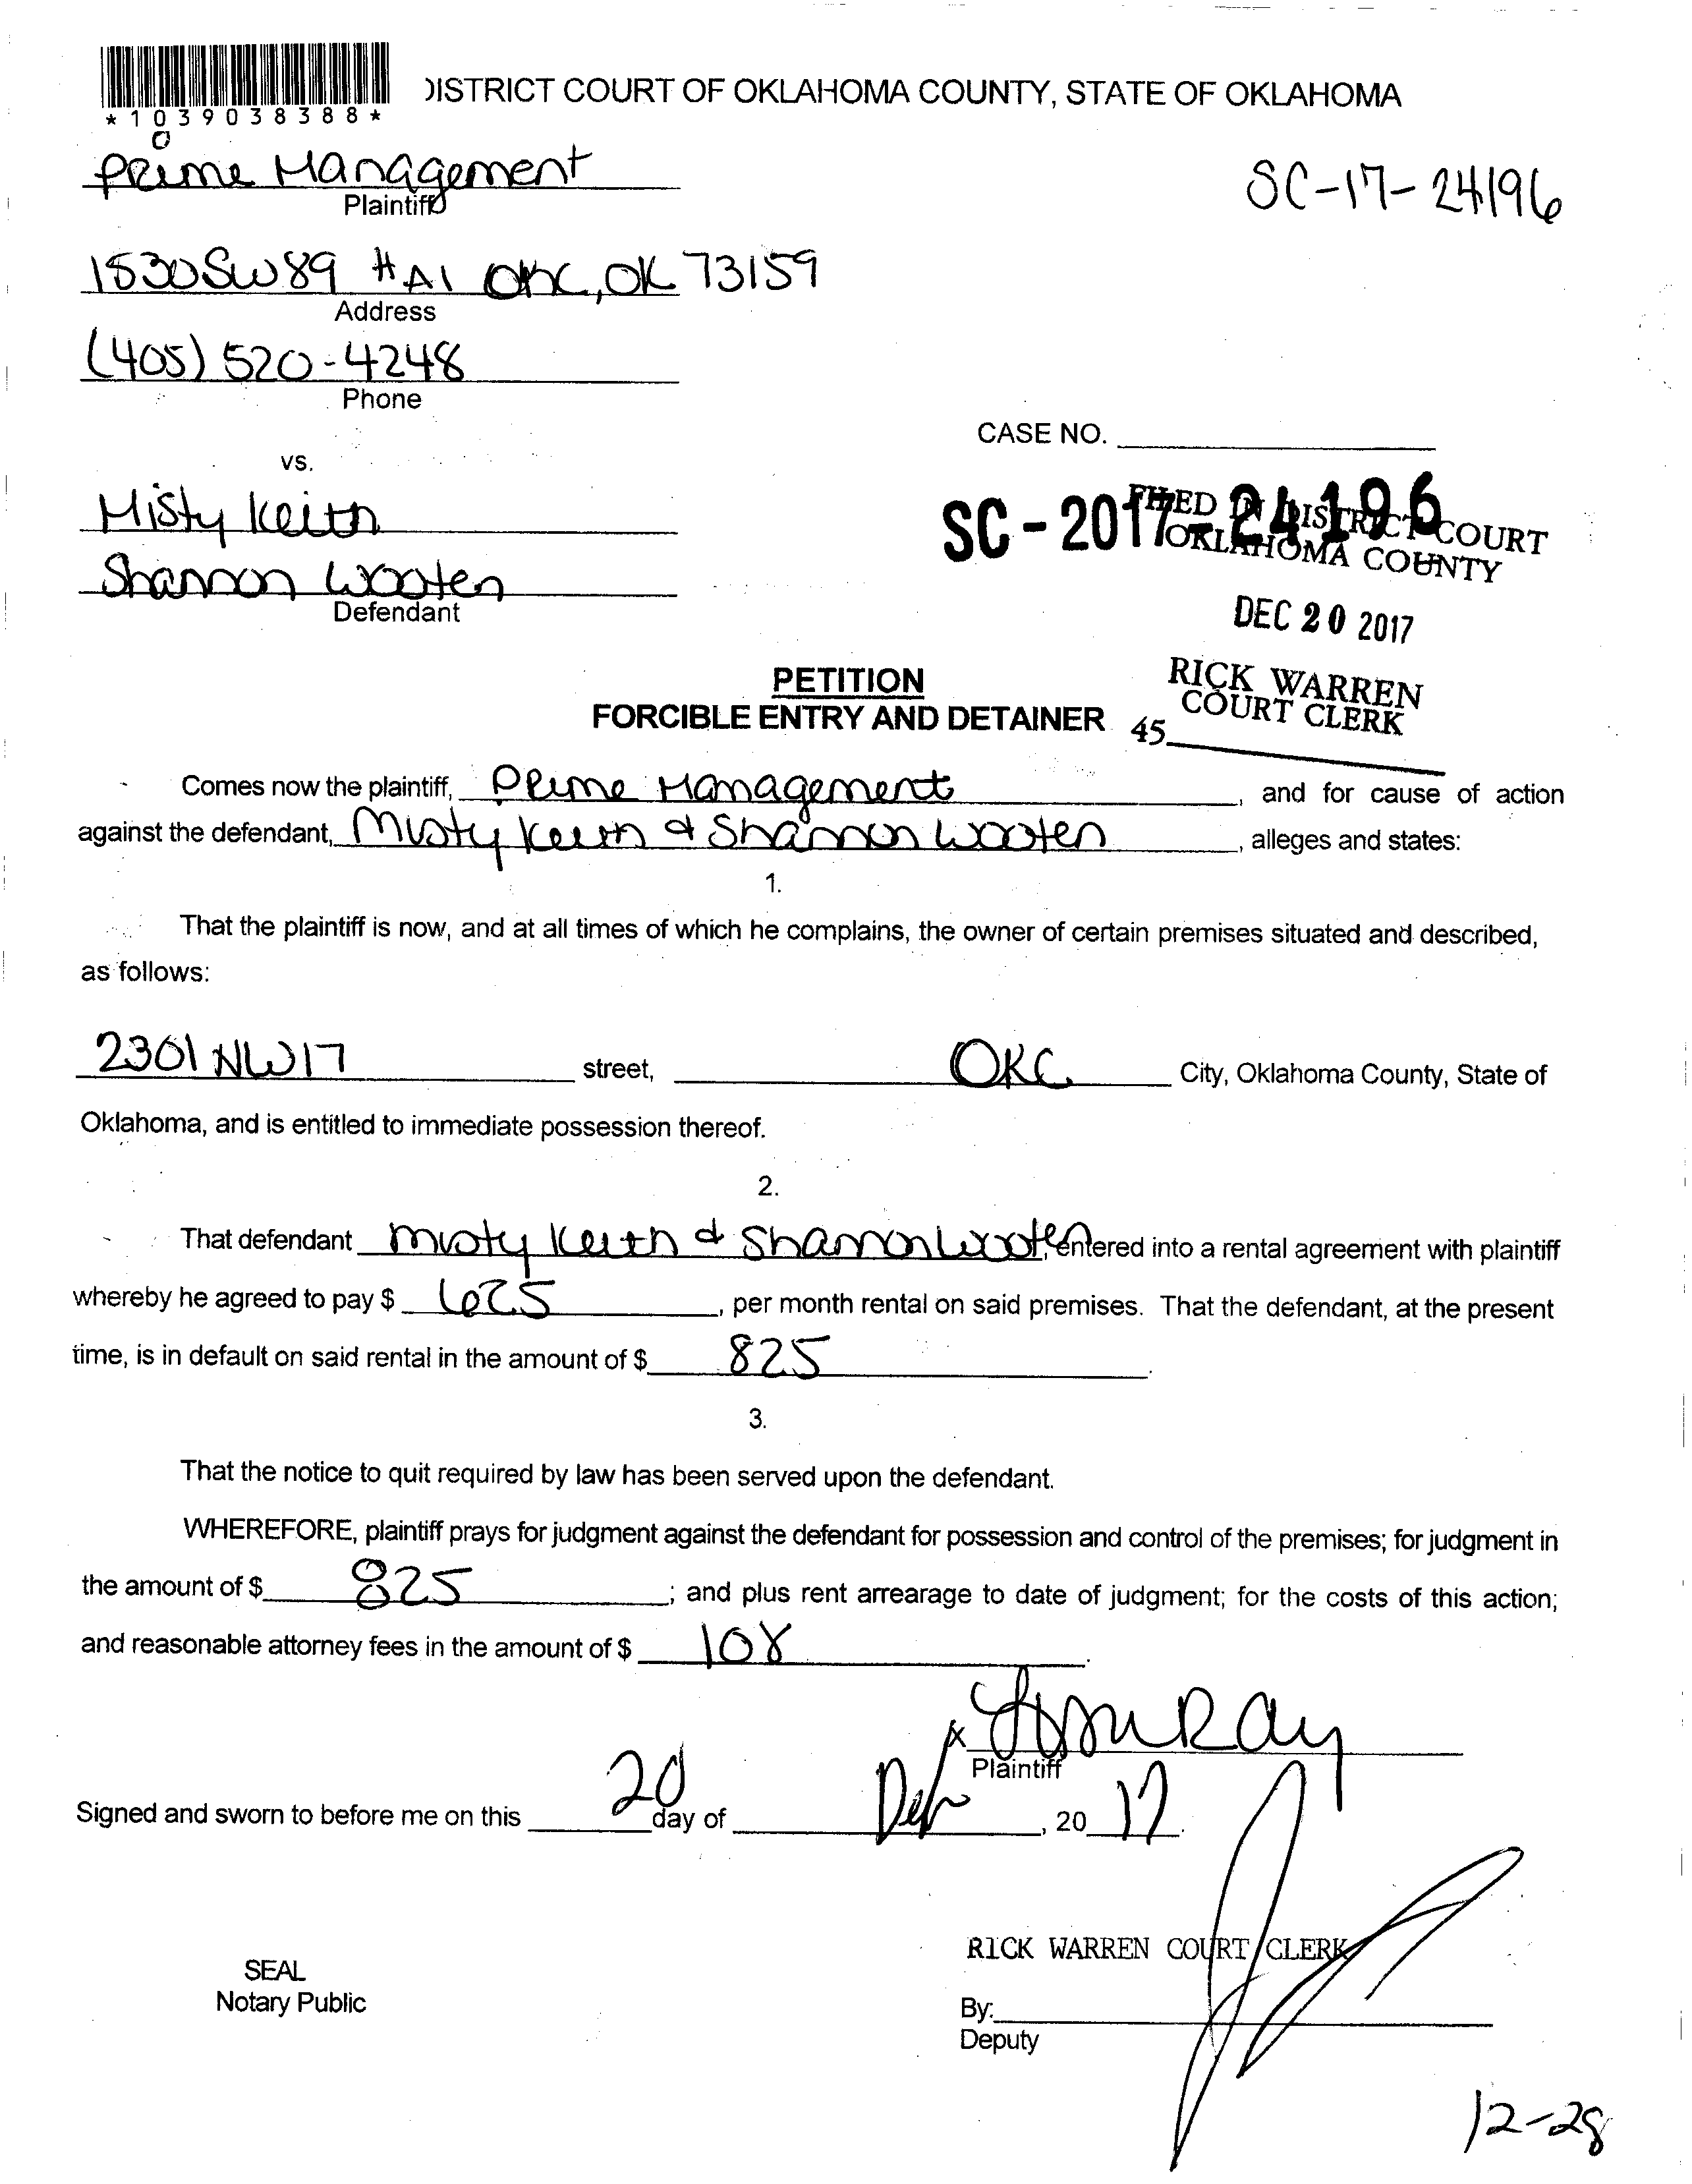 *1039038388*
DISTRICT COURT OF OKLAHOMA COUNTY, STATE OF OKLAHOMA
Prime Management
Plaintiff
SC-17-24196
1530 SW 89 #A1 OKC, OK 73159
Address
(405) 520-4248
Phone
CASE NO.
vs.
Misty Keith
SC-2017-24196
FILED IN DISTRICT COURT
OKLAHOMA COUNTY
Shannon Wooten
Defendant
DEC 20 2017
PETITION
RICK WARREN
COURT CLERK
FORCIBLE ENTRY AND DETAINER
45
Comes now the plaintiff, Prime Management, and for cause of action
against the defendant, Misty Keith & Shannon Wooten, alleges and states:
1.
That the plaintiff is now, and at all times of which he complains, the owner of certain premises situated and described,
as follows:
2301 NW 17 street, OKC City, Oklahoma County, State of
Oklahoma, and is entitled to immediate possession thereof.
2.
That defendant Misty Keith & Shannon Wooten, entered into a rental agreement with plaintiff
whereby he agreed to pay $ 625, per month rental on said premises. That the defendant, at the present
time, is in default on said rental in the amount of $ 825.
3.
That the notice to quit required by law has been served upon the defendant.
WHEREFORE, plaintiff prays for judgment against the defendant for possession and control of the premises; for judgment in
the amount of $ 825; and plus rent arrearage to date of judgment; for the costs of this action;
and reasonable attorney fees in the amount of $ 108.
x
Plaintiff
Signed and sworn to before me on this 20 day of Dec, 20 17.
RICK WARREN COURT CLERK
SEAL
Notary Public
By:
Deputy
12-28